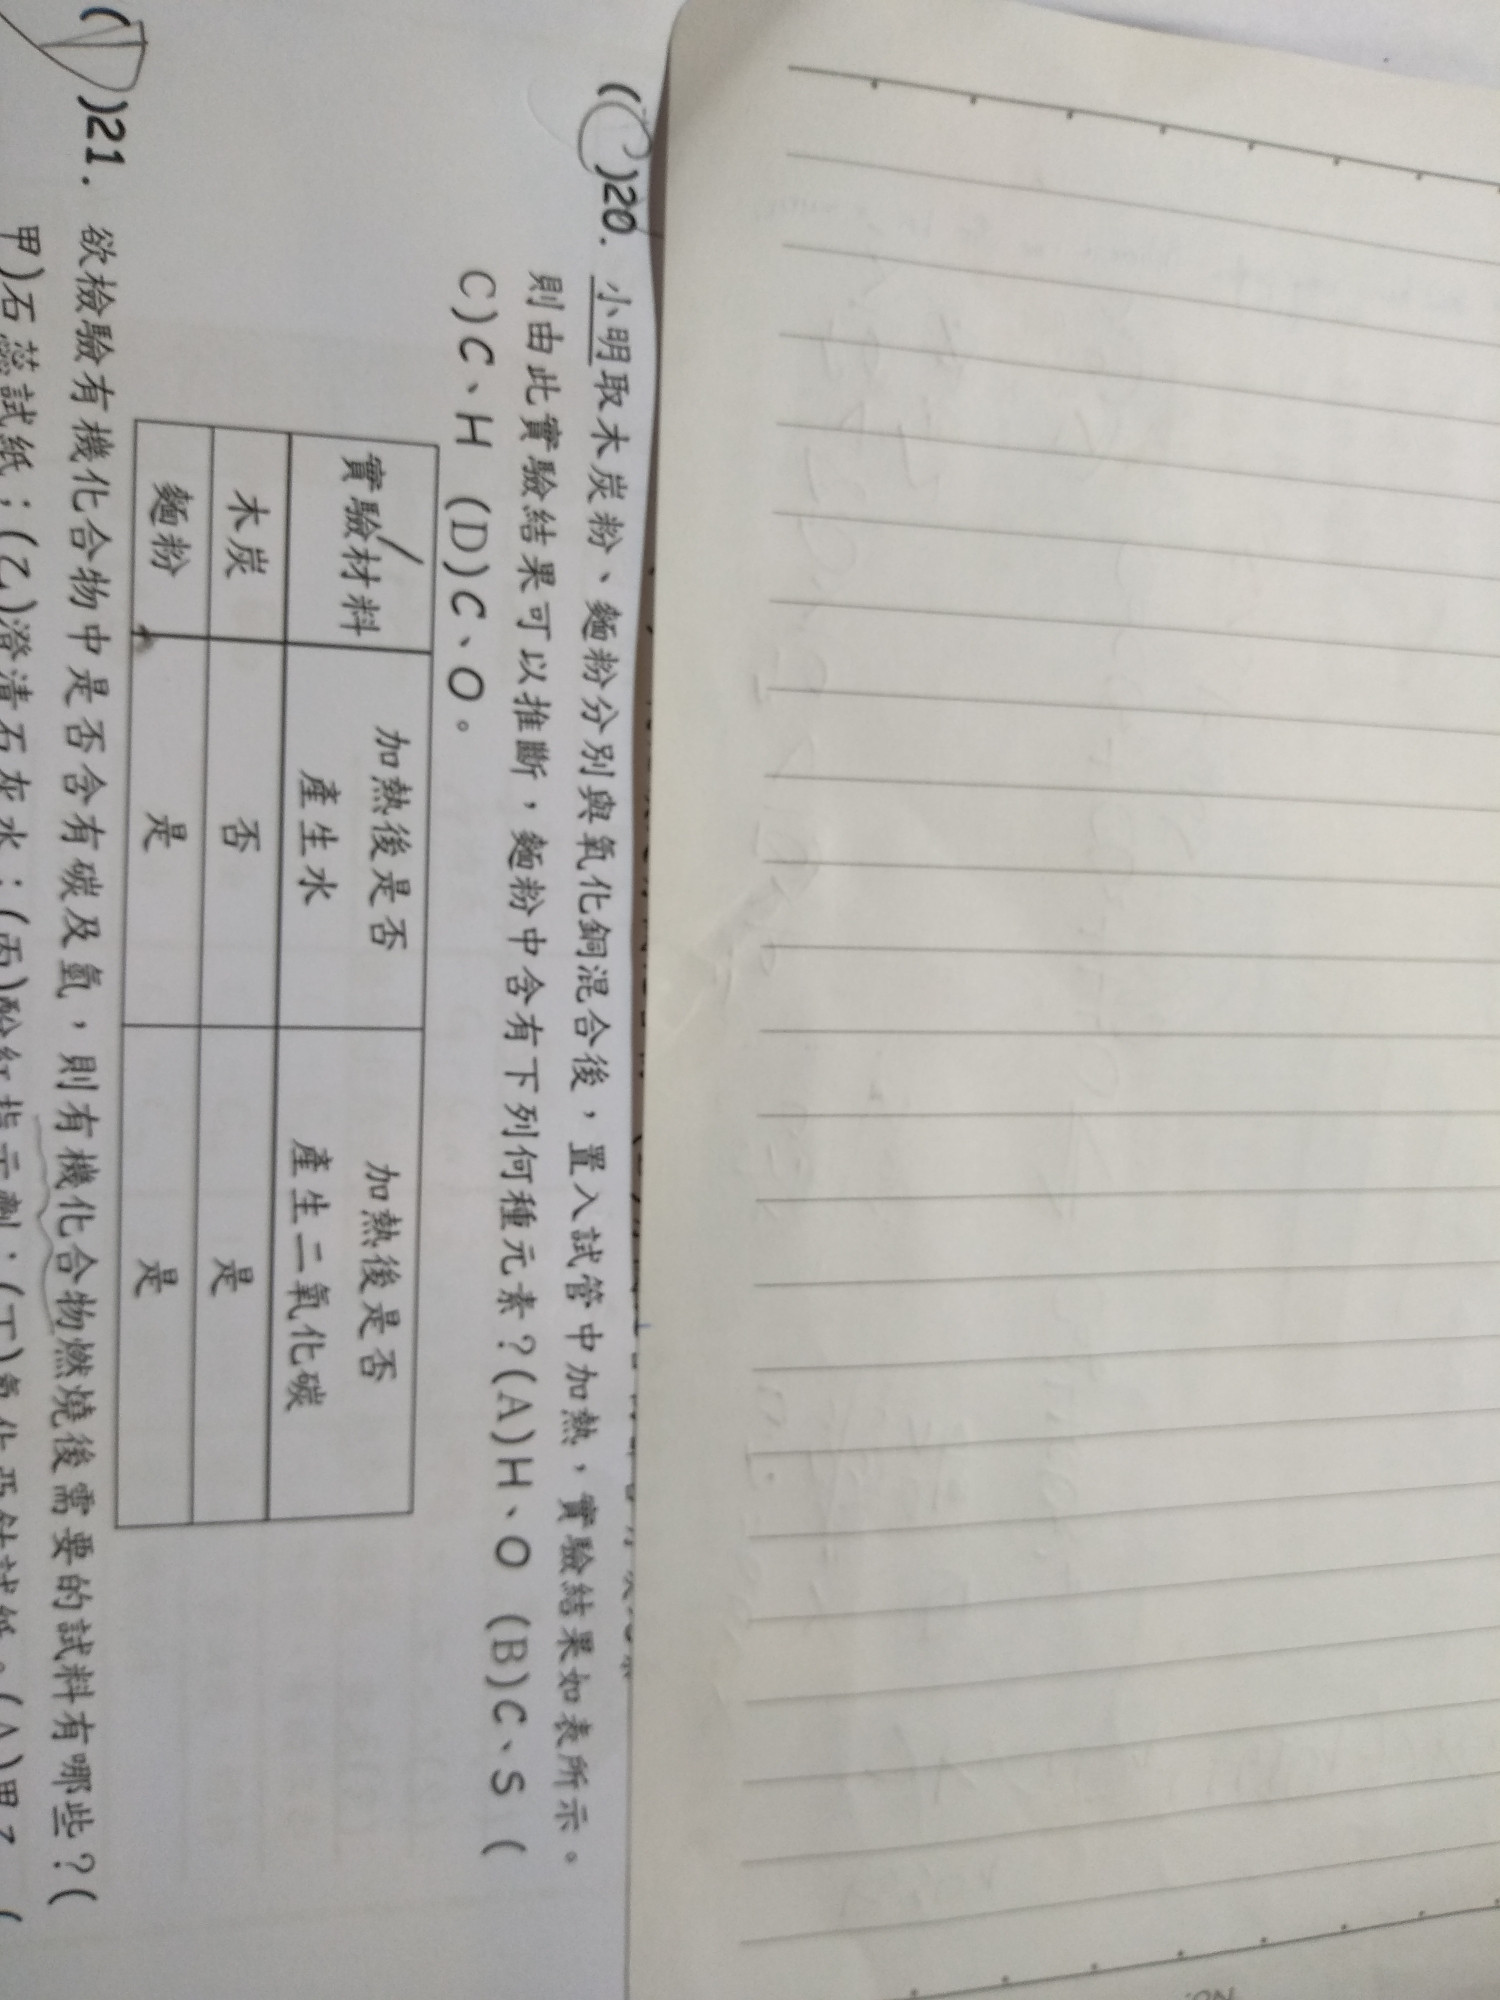 (C)20. 小明取木炭粉、麵粉分別與氧化銅混合後，置入試管中加熱，實驗結果如表所示。
則由此實驗結果可以推斷，麵粉中含有下列何種元素？(A)H、O (B)C、S (
C)C、H (D)C、O。
實驗材料 加熱後是否產生水 加熱後是否產生二氧化碳
木炭 否 是
麵粉 是 是
(D)21. 欲檢驗有機化合物中是否含有碳及氫，則有機化合物燃燒後需要的試料有哪些？(
甲)石蕊試紙；(乙)澄清石灰水；(丙)酚紅指示劑；(丁)氯化亞鈷試紙。(A)甲乙 (
NO.